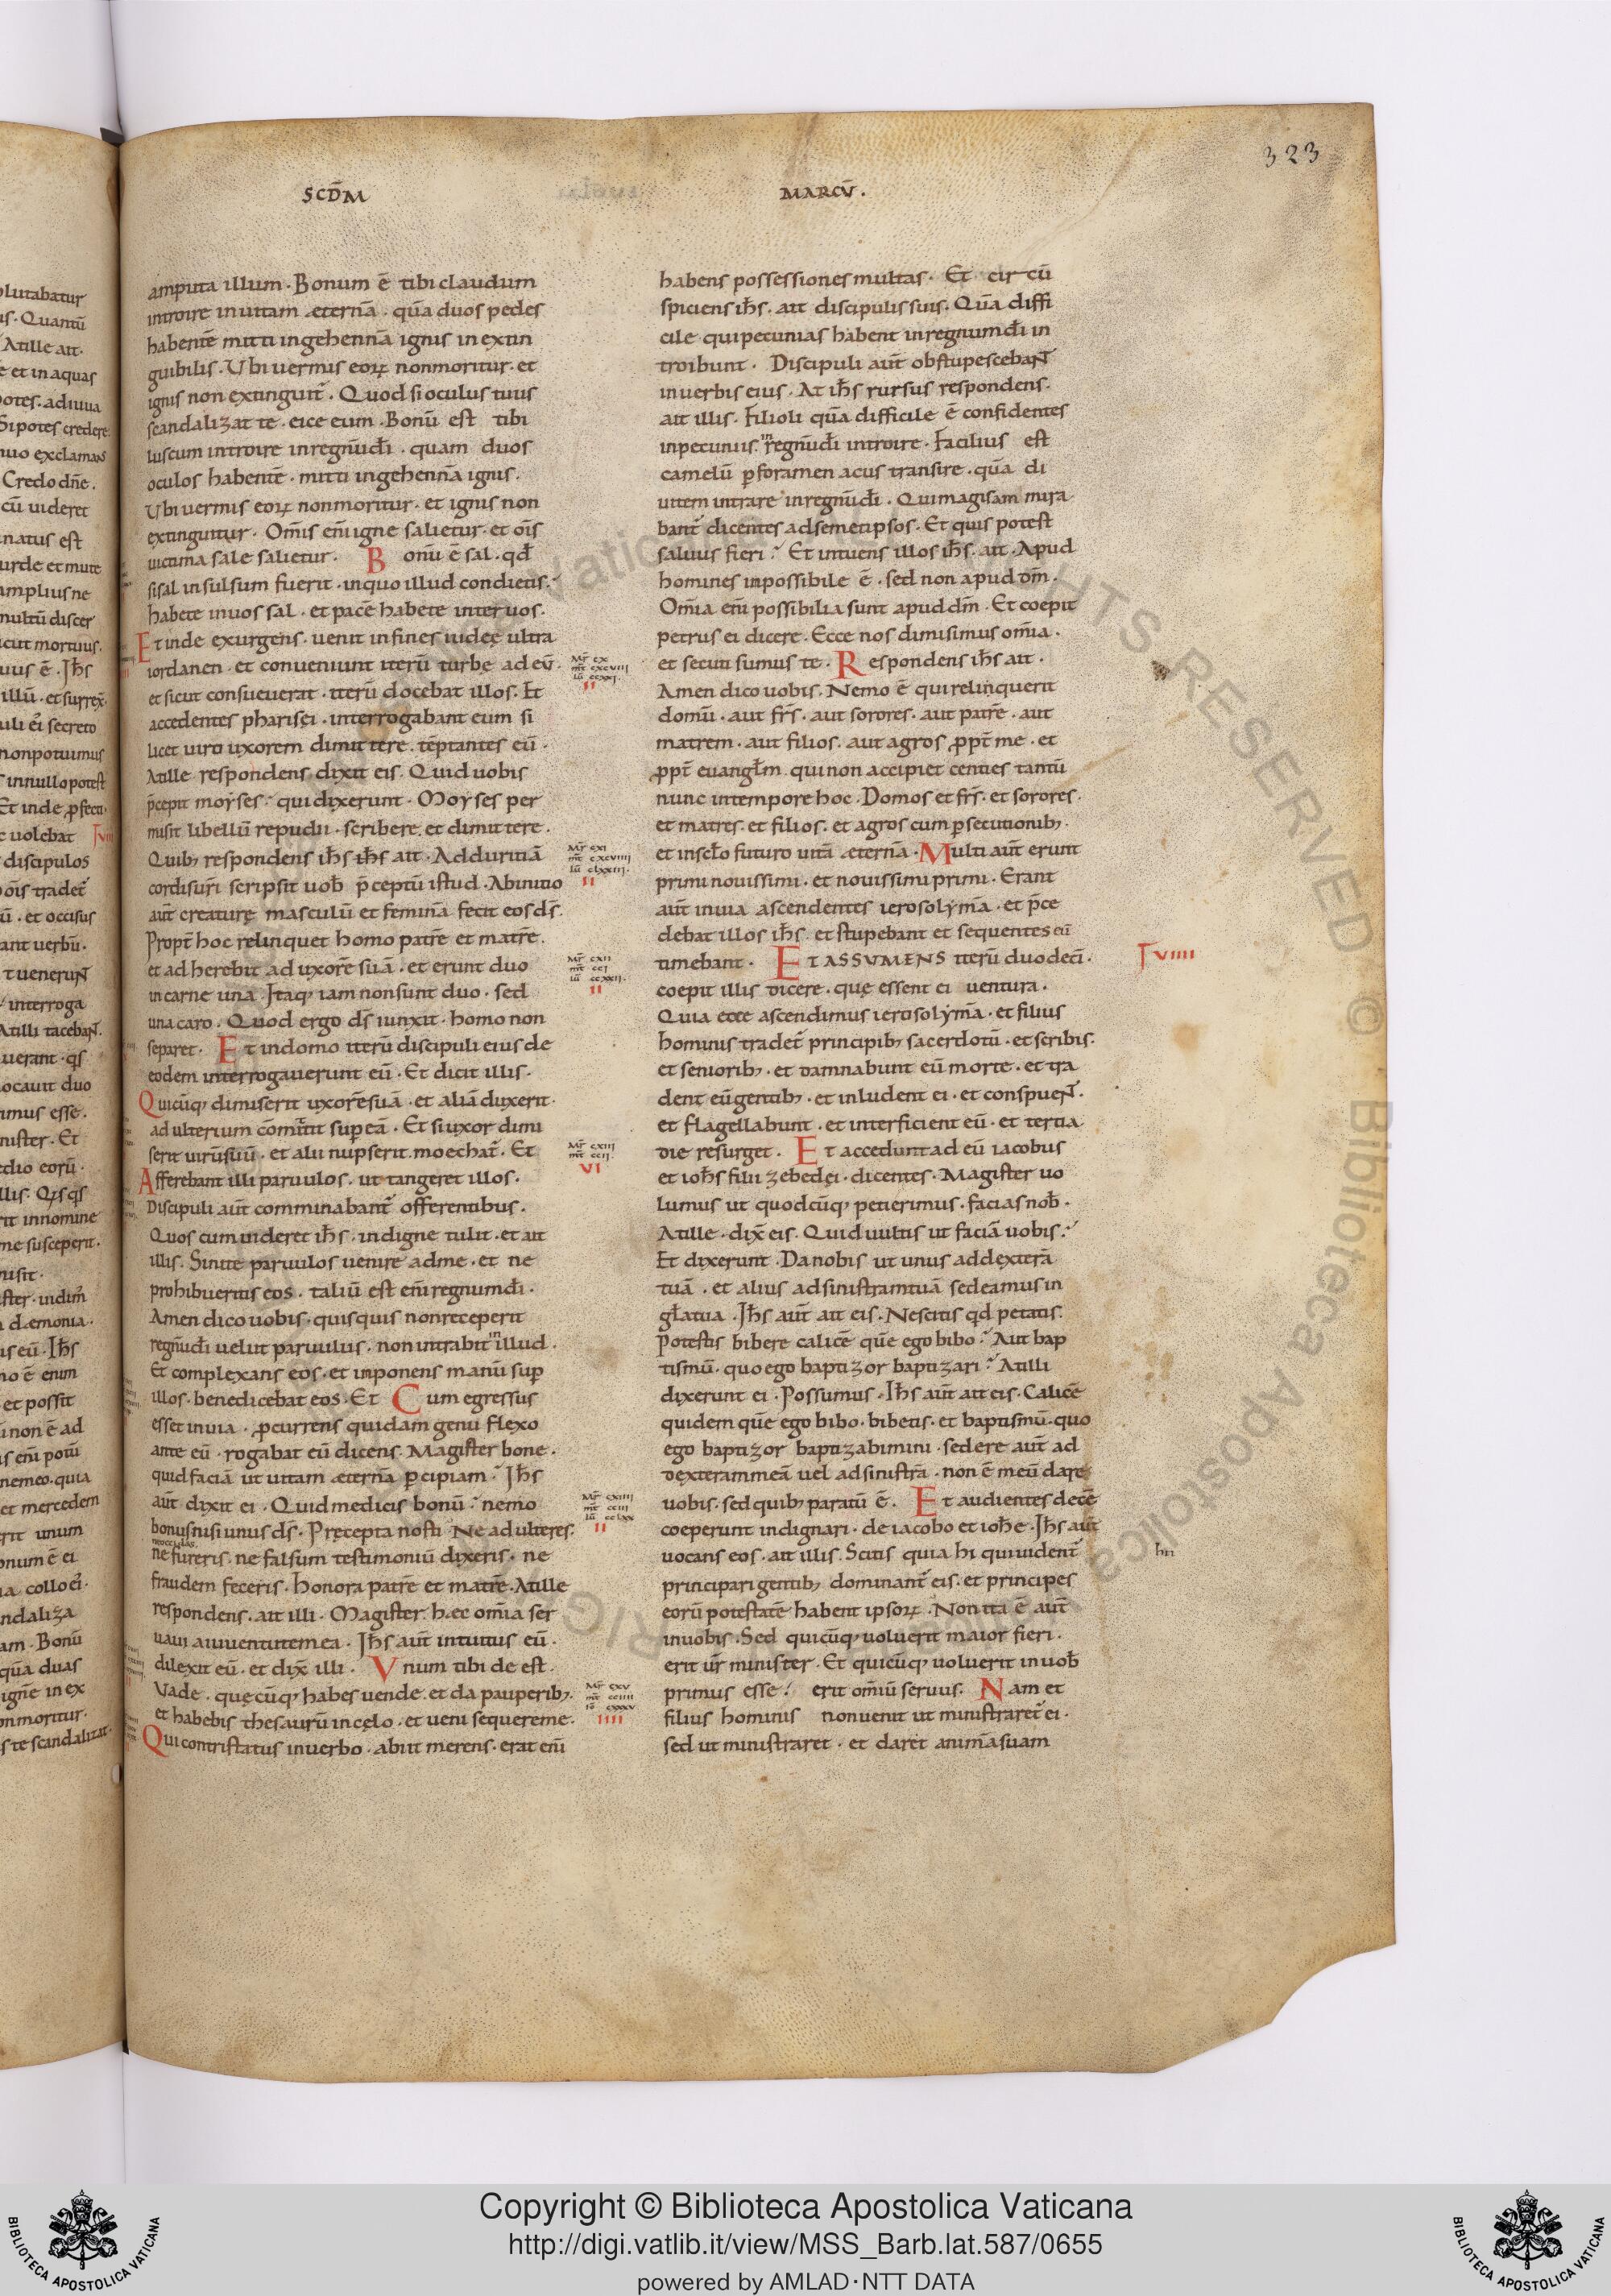 323
SCD̄M MARCV̄.
amputa illum. Bonum ē tibi claudum
introire in uitam æternā. quā duos pedes
habentē mitti in gehennā ignis in extin
guibilis. Ubi uermis eoꝝ non moritur. et
ignis non extinguit᷑. Quod si oculus tuus
scandalizat te. eice eum. Bonū est tibi
luscum introire in regnū dī. quam duos
oculos habentē. mitti in gehennā ignis.
Ubi uermis eoꝝ non moritur. et ignis non
extinguitur. Om̄is em̄ igne salietur. et oīs
uictima sale salietur. Bonū ē sal. qđ
si sal insulsum fuerit. in quo illud condietis?
habete in uos sal. et pacē habete inter uos.
Et inde exurgens. uenit in fines iudeę ultra
iordanen. et conueniunt iterū turbę ad eū.
et sicut consueuerat. iterū docebat illos. Et
accedentes pharisęi. interrogabant eum si
licet uiro uxorem dimittere. tēptantes eū.
At ille respondens dixit eis. Quid uobis
p̄cepit moyses? qui dixerunt. Moyses per
misit libellū repudii. scribere. et dimittere.
Quibꝫ respondens ih̄s ih̄s ait. Ad duritiā
cordis ur̄i scripsit uob̄ p̄ceptū istud. Ab initio
aūt creaturę masculū et feminā fecit eos ds̄.
Propt̄ hoc relinquet homo patrē et matrē.
et adherebit ad uxorē suā. et erunt duo
in carne una. Itaqꝫ iam non sunt duo. sed
una caro. Quod ergo ds̄ iunxit. homo non
separet. Et in domo iterū discipuli eius de
eodem interrogauerunt eū. Et dicit illis.
Quicūqꝫ dimiserit uxorē suā. et aliā duxerit.
adulterium cōmittit sup eā. Et si uxor dimi
serit uirū suū. et alii nupserit. moechat᷑. Et
Afferebant illi paruulos. ut tangeret illos.
Discipuli aūt comminabant᷑ offerentibus.
Quos cum uideret ih̄s. indigne tulit. et ait
illis. Sinite paruulos uenire ad me. et ne
prohibueritis eos. taliū est em̄ regnum dī.
Amen dico uobis. quisquis non receperit
regnū dī uelut paruulus. non intrabit in illud.
Et complexans eos. et imponens manū sup
illos. benedicebat eos. Et Cum egressus
esset in uia. ꝓcurrens quidam genu flexo
ante eū. rogabat eū dicens. Magister bone.
quid faciā ut uitam æternā ꝑcipiam? Ih̄s
aūt dixit ei. Quid me dicis bonū? nemo
bonus nisi unus ds̄. Pręcepta nosti. Ne adulteres.
ne occidas.
ne fureris. ne falsum testimoniū dixeris. ne
fraudem feceris. honora patrē et matrē. At ille
respondens. ait illi. Magister. hæc om̄ia ser
uaui a iuuentute mea. Ih̄s aūt intuitus eū.
dilexit eū. et dix̄ illi. Vnum tibi de est.
Vade. quęcūqꝫ habes uende. et da pauperibꝫ.
et habebis thesaurū in cęlo. et ueni sequere me.
Qui contristatus in uerbo. abiit merens. erat em̄
Mr̄ cx
mt̄ cxcviii
lū ccxxi.
II
Mr̄ cxi
mt̄ cxcviiii
lū clxxiii.
II
Mr̄ cxii
mt̄ cci
lū ccxxii.
II
Mr̄ cxiii
mt̄ ccii.
VI
Mr̄ cxiiii
mt̄ cciii
lū cclxx
II
Mr̄ cxv
mt̄ cciiii
iō cxxxv
IIII
habens possessiones multas. Et circū
spiciens ih̄s. ait discipulis suis. Quā diffi
cile qui pecunias habent in regnum dī in
troibunt. Discipuli aūt obstupescebant
in uerbis eius. At ih̄s rursus respondens.
ait illis. Filioli quā difficile ē confidentes
in pecuniis. in regnū dī introire. Facilius est
camelū ꝑ foramen acus transire. quā di
uitem intrare in regnū dī. Qui magis am mira
bant᷑ dicentes ad semetipsos. Et quis potest
saluus fieri? Et intuens illos ih̄s. ait. Apud
homines impossibile ē. sed non apud dm̄.
Om̄ia em̄ possibilia sunt apud dm̄. Et coepit
petrus ei dicere. Ecce nos dimisimus om̄ia.
et secuti sumus te. Respondens ih̄s ait.
Amen dico uobis. Nemo ē qui relinquerit
domū. aut fr̄s. aut sorores. aut patrē. aut
matrem. aut filios. aut agros ꝓpt̄ me. et
ꝓpt̄ euanglm̄. qui non accipiet centies tantū
nunc in tempore hoc. Domos et fr̄s. et sorores.
et matres. et filios. et agros cum ꝑsecutionibꝫ.
et in sc̄lo futuro uitā æternā. Multi aūt erunt
primi nouissimi. et nouissimi primi. Erant
aūt in uia ascendentes ierosolymā. et p̄ce
debat illos ih̄s. et stupebant et sequentes eū
timebant. ET ASSVMENS iterū duodecī.
Γviiii
coepit illis dicere. quę essent ei uentura.
Quia ecce ascendimus ierosolymā. et filius
hominis tradet᷑ principibꝫ sacerdotū. et scribis.
et senioribꝫ. et damnabunt eū morte. et tra
dent eū gentibꝫ. et inludent ei. et conspuent.
et flagellabunt. et interficient eū. et tertia
die resurget. Et accedunt ad eū iacobus
et ioh̄s filii zebedęi. dicentes. Magister uo
lumus ut quodcūqꝫ petierimus. facias nob̄.
At ille. dix̄ eis. Quid uultis ut faciā uobis?
Et dixerunt. Da nobis ut unus ad dexterā
tuā. et alius ad sinistram tuā sedeamus in
gl̄a tua. Ih̄s aūt ait eis. Nescitis qd petatis.
Potestis bibere calicē quē ego bibo? Aut bap
tismū. quo ego baptizor baptizari? At illi
dixerunt ei. Possumus. Ih̄s aūt ait eis. Calicē
quidem quē ego bibo. bibetis. et baptismū. quo
ego baptizor baptizabimini. sedere aūt ad
dexteram meā uel ad sinistrā. non ē meū dare
uobis. sed quibꝫ paratū ē. Et audientes decē
coeperunt indignari. de iacobo et ioh̄e. Ih̄s aūt
uocans eos. ait illis. Scitis quia hi qui uident᷑
principari gentibꝫ dominant᷑ eis. et principes
eorū potestatē habent ipsoꝝ. Non ita ē aūt
in uobis. Sed quicūqꝫ uoluerit maior fieri.
erit ur̄ minister. Et quicūqꝫ uoluerit in uob̄
primus esse. erit om̄iū seruus. Nam et
filius hominis non uenit ut ministraret᷑ ei.
sed ut ministraret. et daret animā suam
Copyright © Biblioteca Apostolica Vaticana
http://digi.vatlib.it/view/MSS_Barb.lat.587/0655
powered by AMLAD·NTT DATA
BIBLIOTECA APOSTOLICA VATICANA
BIBLIOTECA APOSTOLICA VATICANA